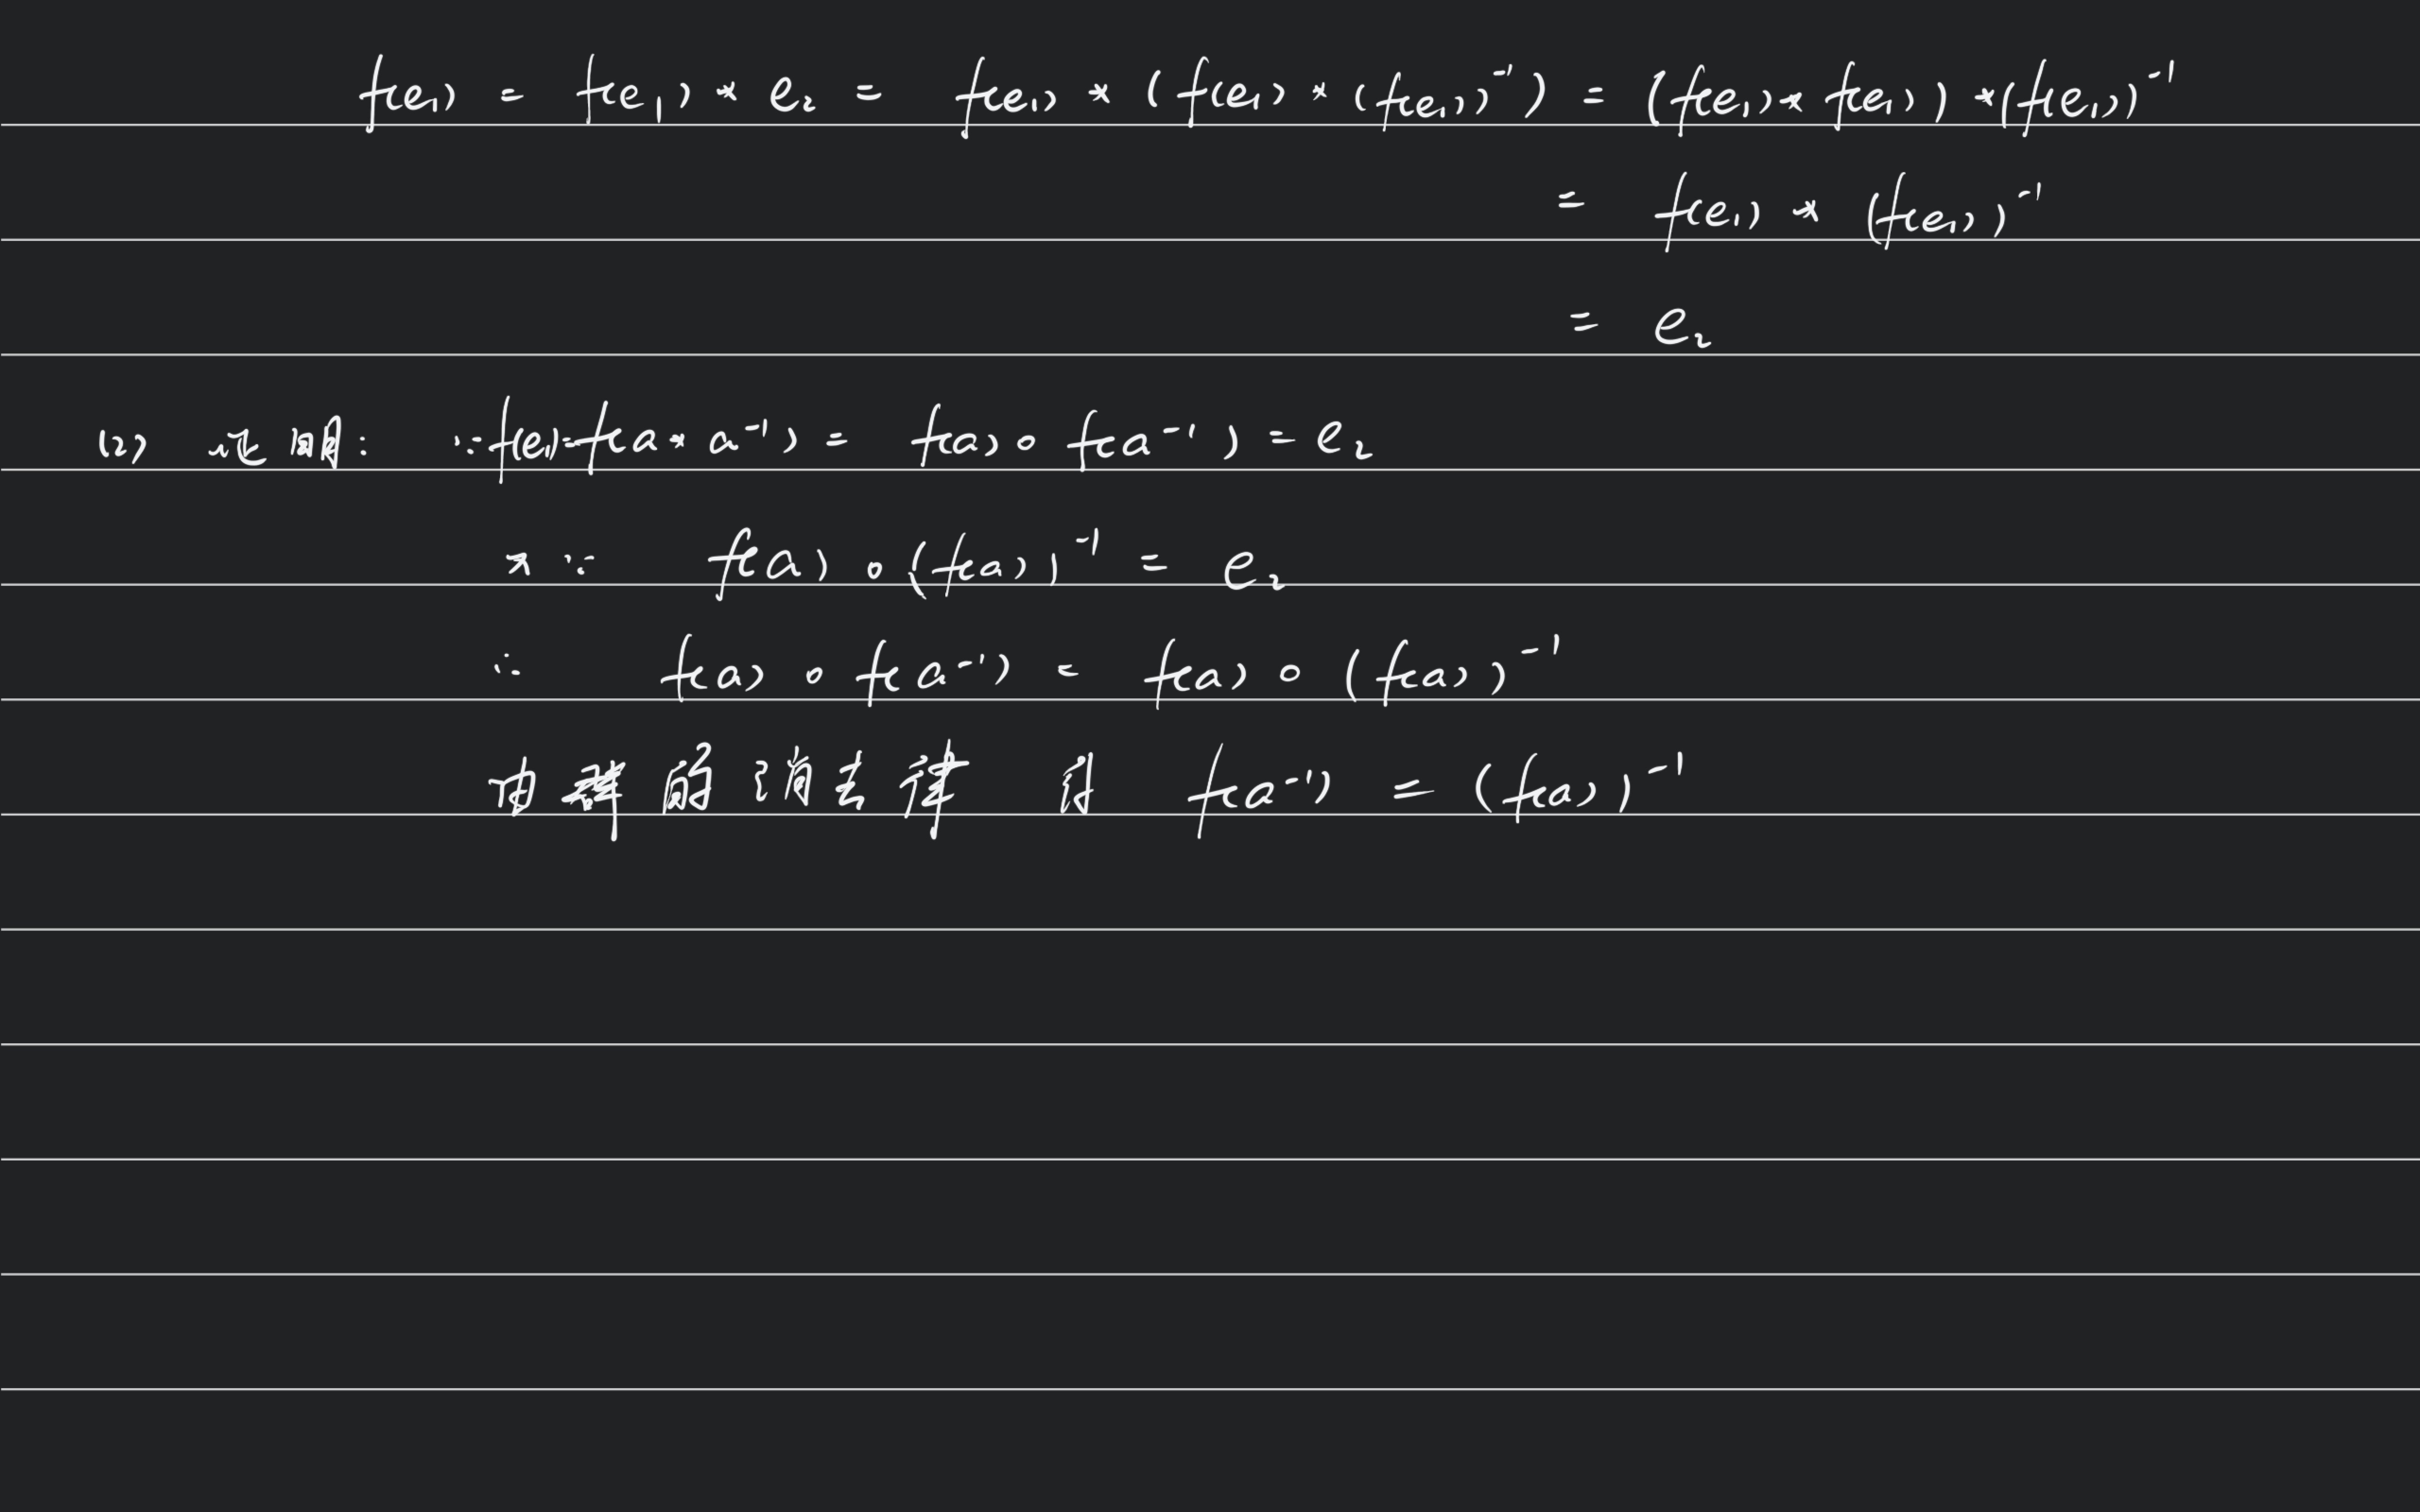 f(e₁) = f(e₁) * e₂ = f(e₁) * (f(e₁) * (f(e₁))⁻¹) = (f(e₁) * f(e₁)) * (f(e₁))⁻¹
= f(e₁) * (f(e₁))⁻¹
= e₂
(2) 证明: ∵ f(e₁) = f(a * a⁻¹) = f(a) ∘ f(a⁻¹) = e₂
又∵ f(a) ∘ (f(a))⁻¹ = e₂
∴ f(a) ∘ f(a⁻¹) = f(a) ∘ (f(a))⁻¹
由群的消去律 得 f(a⁻¹) = (f(a))⁻¹